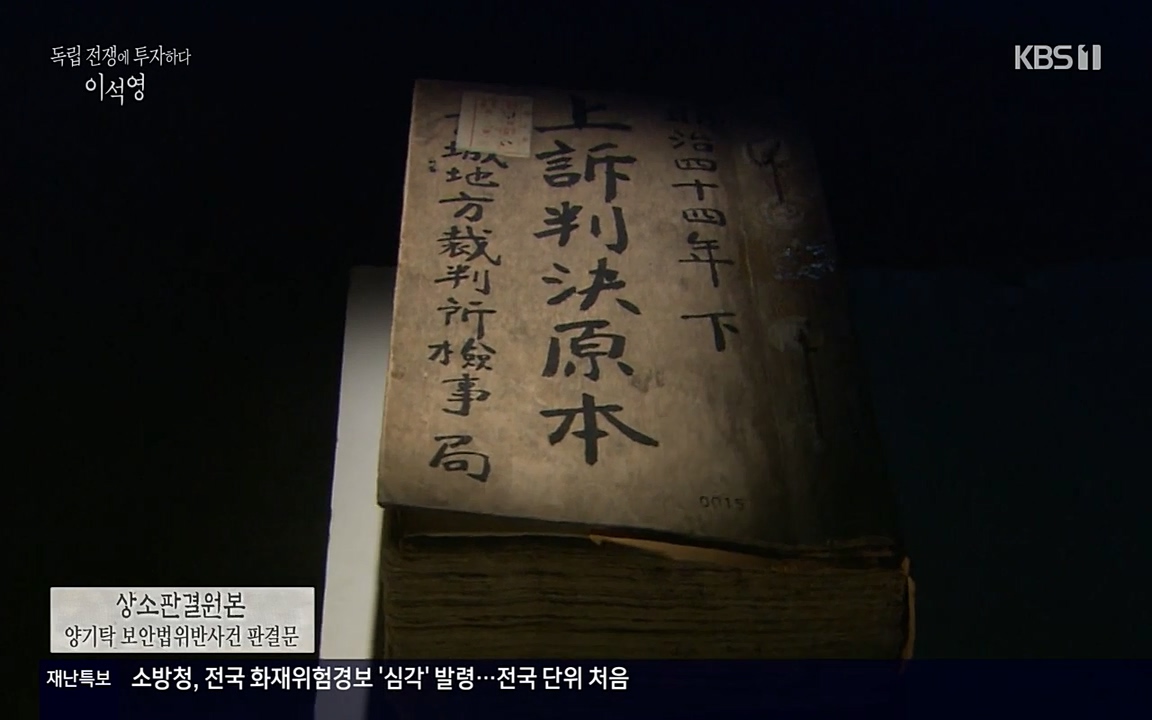 독립 전쟁에 투자하다
이석영
KBS1
治四十四年 下
上訴判決原本
城地方裁判所檢事局
0015
상소판결원본
양기탁 보안법위반사건 판결문
재난특보 소방청, 전국 화재위험경보 '심각' 발령…전국 단위 처음